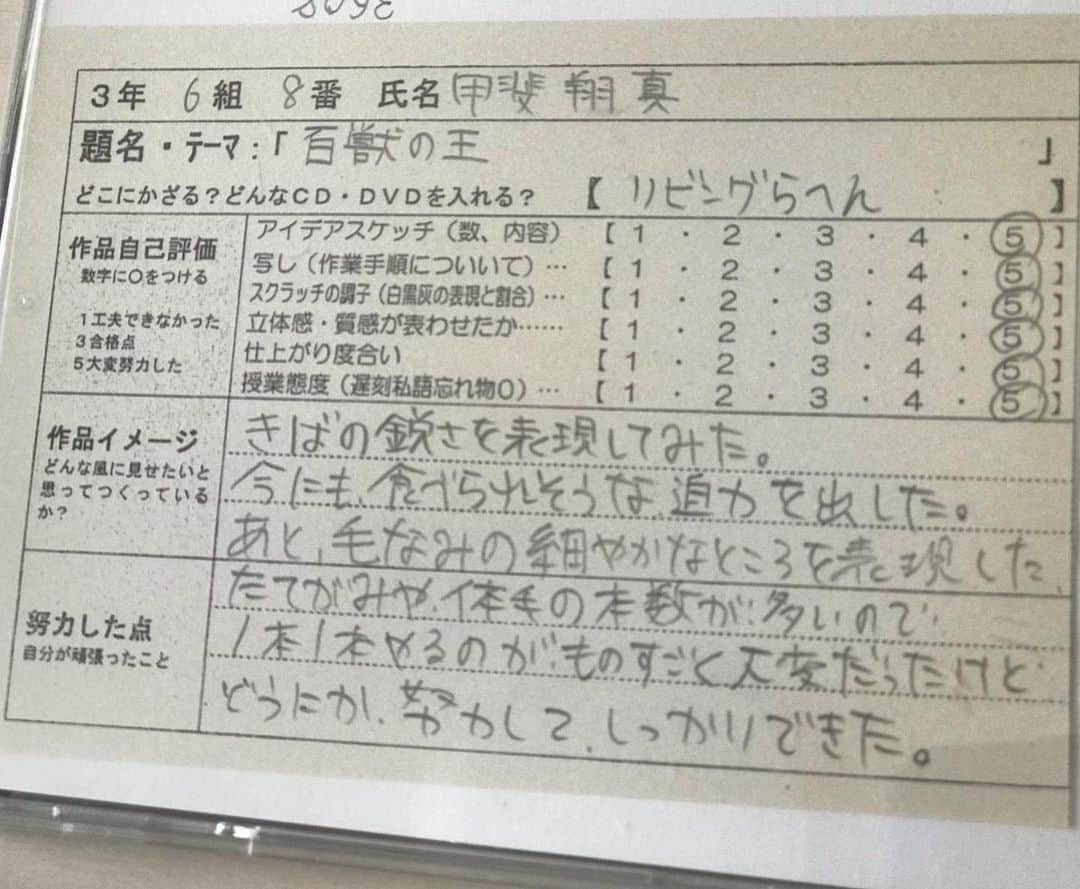 3年 6組 8番 氏名 甲斐 翔真
題名・テーマ：「百獣の王」
どこにかざる？どんなCD・DVDを入れる？ 【リビングらへん】
作品自己評価
数字に○をつける
1工夫できなかった
3合格点
5大変努力した
アイデアスケッチ（数、内容） 【 1 ・ 2 ・ 3 ・ 4 ・ 5 】
写し（作業手順についいて）… 【 1 ・ 2 ・ 3 ・ 4 ・ 5 】
スクラッチの調子（白黒灰の表現と割合）… 【 1 ・ 2 ・ 3 ・ 4 ・ 5 】
立体感・質感が表わせたか…… 【 1 ・ 2 ・ 3 ・ 4 ・ 5 】
仕上がり度合い 【 1 ・ 2 ・ 3 ・ 4 ・ 5 】
授業態度（遅刻私語忘れ物０）… 【 1 ・ 2 ・ 3 ・ 4 ・ 5 】
作品イメージ
どんな風に見せたいと
思ってつくっている
か？
きばの鋭さを表現してみた。
今にも、食べられそうな迫力を出した。
あと、毛なみの細やかなところを表現した
努力した点
自分が頑張ったこと
たてがみや、体毛の本数が多いので
1本1本やるのがものすごく大変だったけど
どうにか、努力して、しっかりできた。